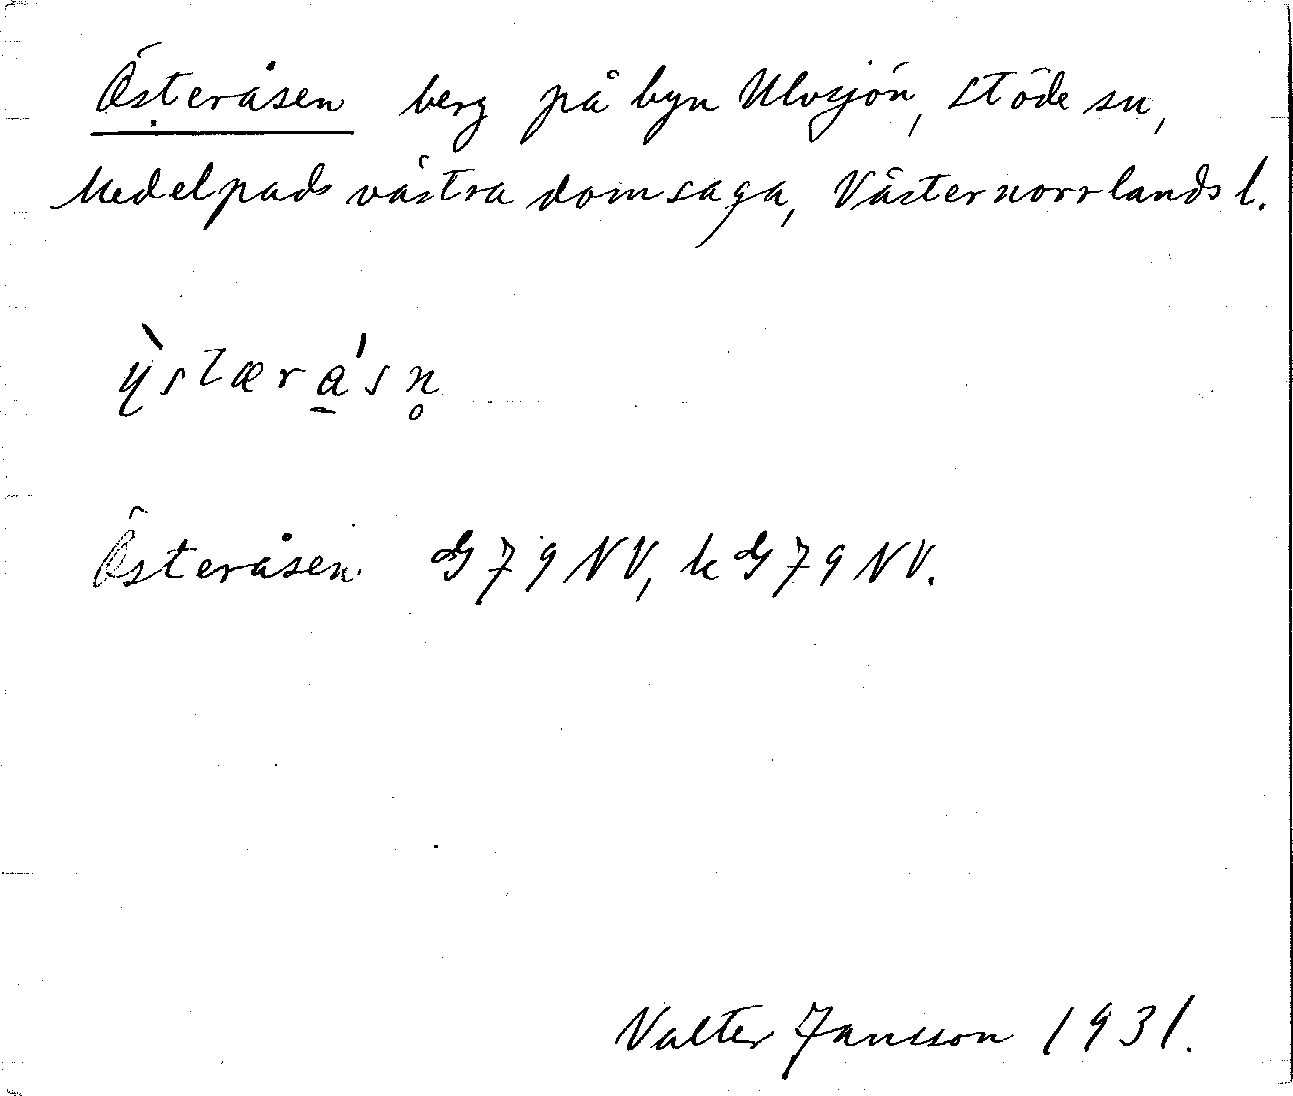 Österåsen berg på byn Ulvsjön, Stöde sn,
Medelpads västra domsaga, Västernorrlands l.
ỳ̖stæra̲´sn̥
Österåsen G79NV, k G79NV.
Valter Jansson 1931.